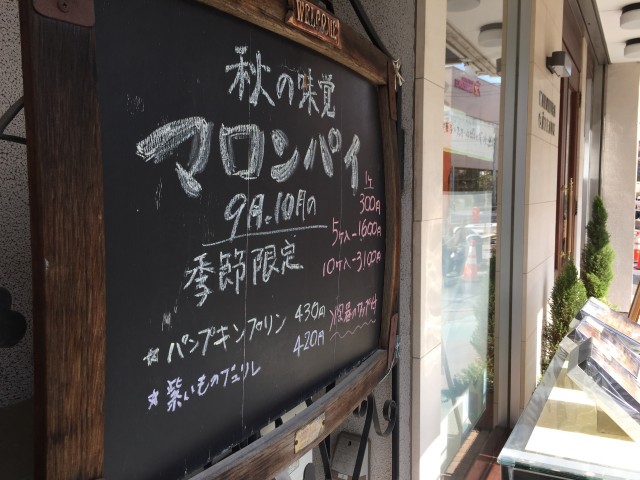 WELCOME
秋の味覚
マロンパイ
9月、10月の
季節限定
1ケ
300円
5ヶ入-1600円
10ヶ入-3100円
☆ パンプキンプリン 430円
☆ 紫いものブリュレ 420円